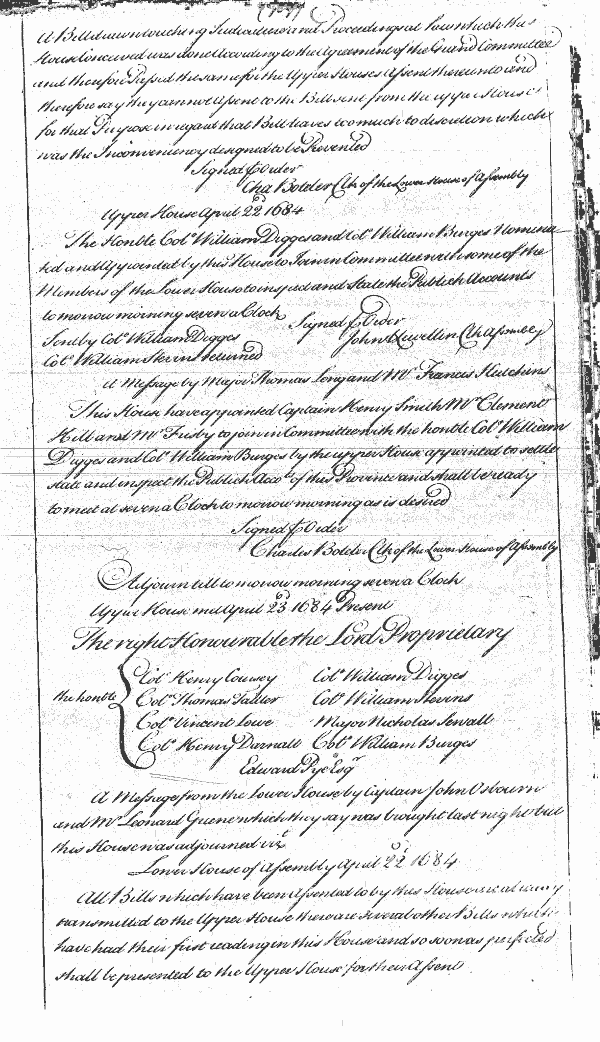 A Bill drawn touching Judicature and Proceedings at Law which this
House conceived was done According to the Agreement of the Grand Committee
and therefore Passed the same for the Upper Houses Assent thereunto and
therefore say they cannot Assent to the Bill sent from the upper House
for that Purpose in regard that Bill leaves too much to discretion which
was the Inconveniency designed to be Prevented
Signed P Order
Cha Bolder Clk of the Lower House of Assembly
Upper House April 22d 1684
The Honble Colo William Digges and Colo William Burges Nomina-
ted and Appointed by this House to Joine in Committee with some of the
Members of the Lower House to inspect and State the Publick Accounts
to morrow morning seven a Clock
Signed P Order
Sent by Colo William Digges
John Llewellin Clk Assembly
Colo William Stevens returned
A Message by Major Thomas Long and Mr Francis Hutchins
This House have appointed Captain Henry Smith Mr Clement
Hill and Mr Frisby to join in Committee with the honble Colo William
Digges and Colo William Burges by the upper House appointed to settle
state and inspect the Publick Accots of this Province and shall be ready
to meet at seven a Clock to morrow morning as is desired
Signed P Order
Charles Bolder Clk of the Lower House of Assembly
Adjourn till to morrow morning seven a Clock
Upper House met April 23d 1684 Present
The right Honourable the Lord Proprietary
Colo Henry Coursey Colo William Digges
the honble Colo Thomas Tailler Colo William Stevens
Colo Vincent Lowe Major Nicholas Sewall
Colo Henry Darnall Colo William Burges
Edward Pye Esqr
A Message from the Lower House by Captain John Osbourn
and Mr Leonard Greene which they say was brought last night but
this House was adjourned vizt
Lower House of Assembly April 22d 1684
All Bills which have been Assented to by this House are already
transmitted to the Upper House there are several other Bills which
have had their first reading in this House and so soon as perfected
shall be presented to the Upper House for their Assent